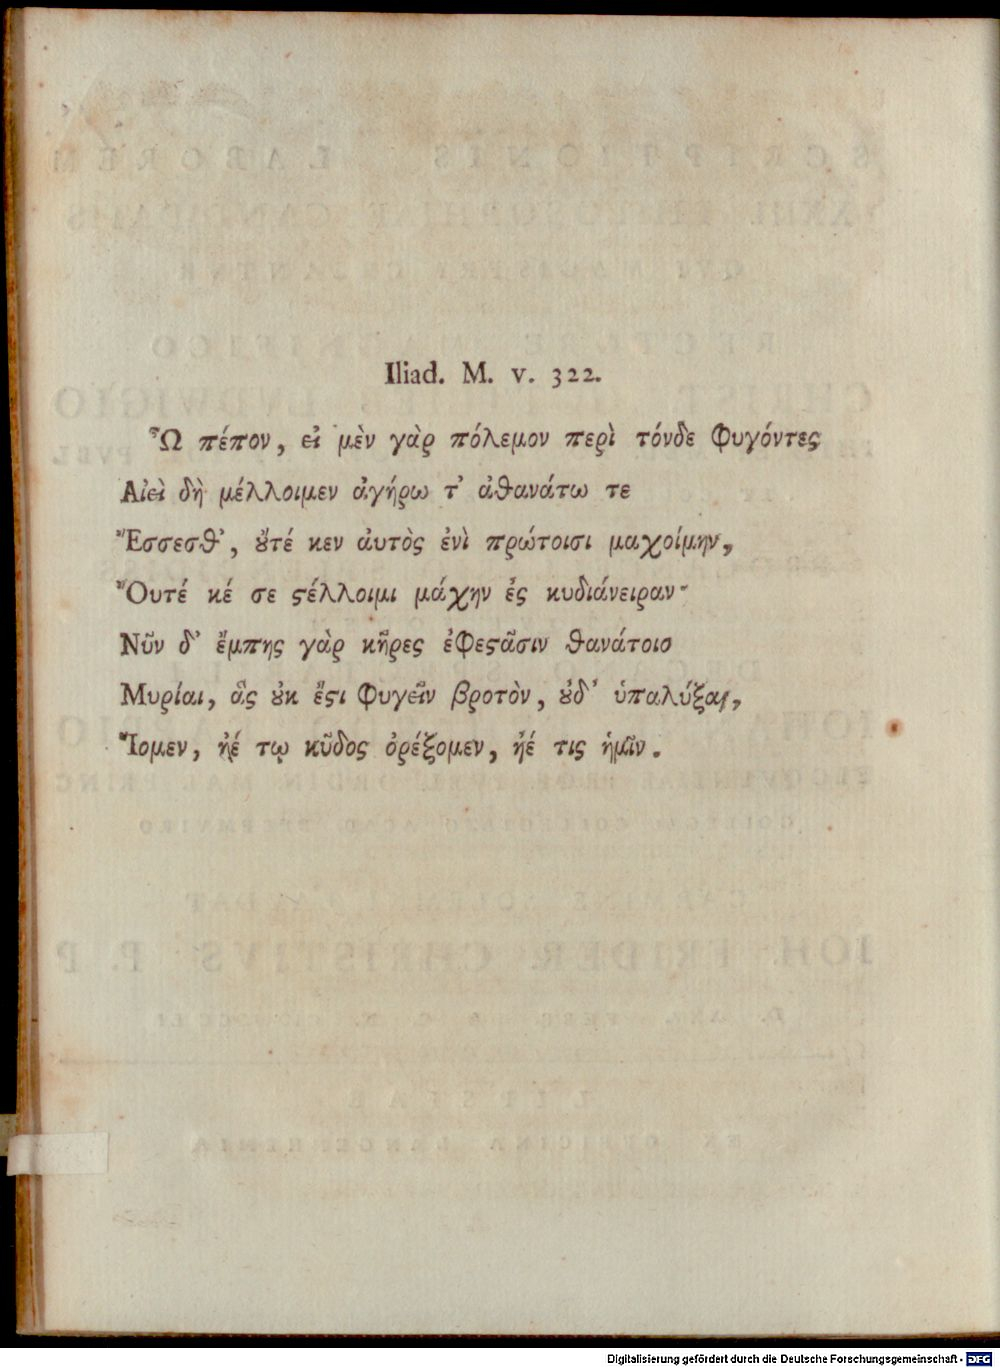 Iliad. M. v. 322.
Ὦ πέπον, εἰ μὲν γὰρ πόλεμον περὶ τόνδε φυγόντες
Αἰεὶ δὴ μέλλοιμεν ἀγήρω τ' ἀθανάτω τε
Ἔσσεσθ', ȣ̓́τέ κεν ἀυτὸς ἐνὶ πρώτοισι μαχοίμην,
Ὄυτέ κέ σε ϛέλλοιμι μάχην ἐς κυδιάνειραν·
Νῦν δ' ἔμπης γὰρ κῆρες ἐφεϛᾶσιν θανάτοιο
Μυρίαι, ἃς ȣ̓κ ἔϛι φυγεῖν βροτὸν, ȣ̓δ' ὑπαλύξαι,
Ἴομεν, ἠέ τῳ κῦδος ὀρέξομεν, ἠέ τις ἡμῖν.
Digitalisierung gefördert durch die Deutsche Forschungsgemeinschaft - DFG